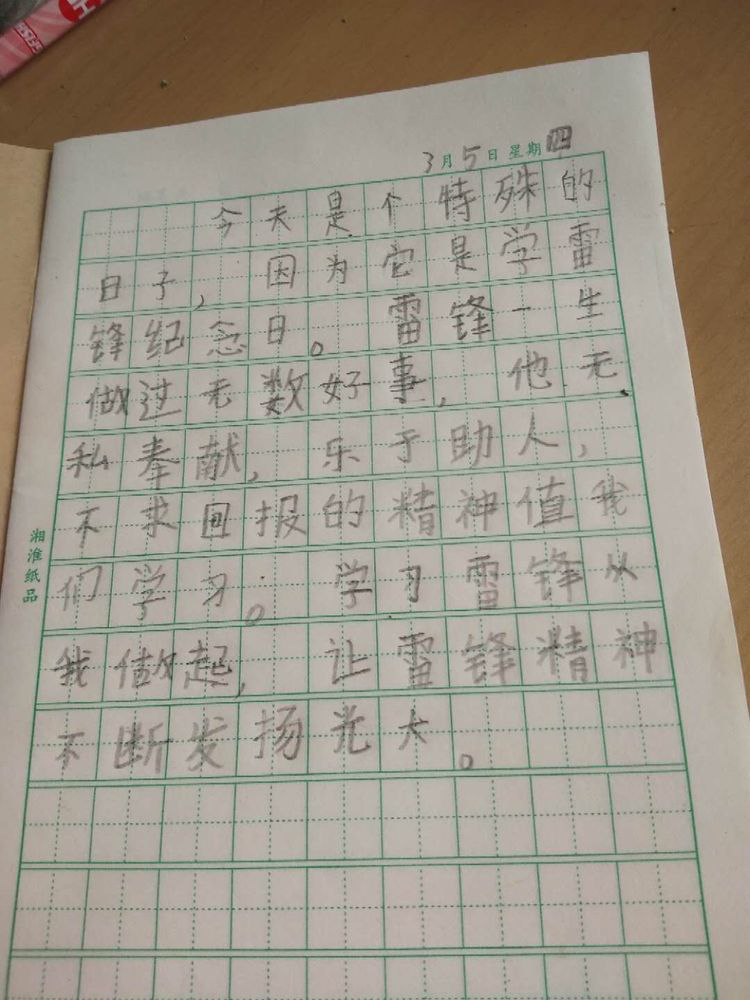 3月5日 星期四
今天是个特殊的
日子，因为它是学雷
锋纪念日。雷锋一生
做过无数好事，他无
私奉献，乐于助人，
不求回报的精神值我
们学习。学习雷锋从
我做起，让雷锋精神
不断发扬光大。
湘淮纸品